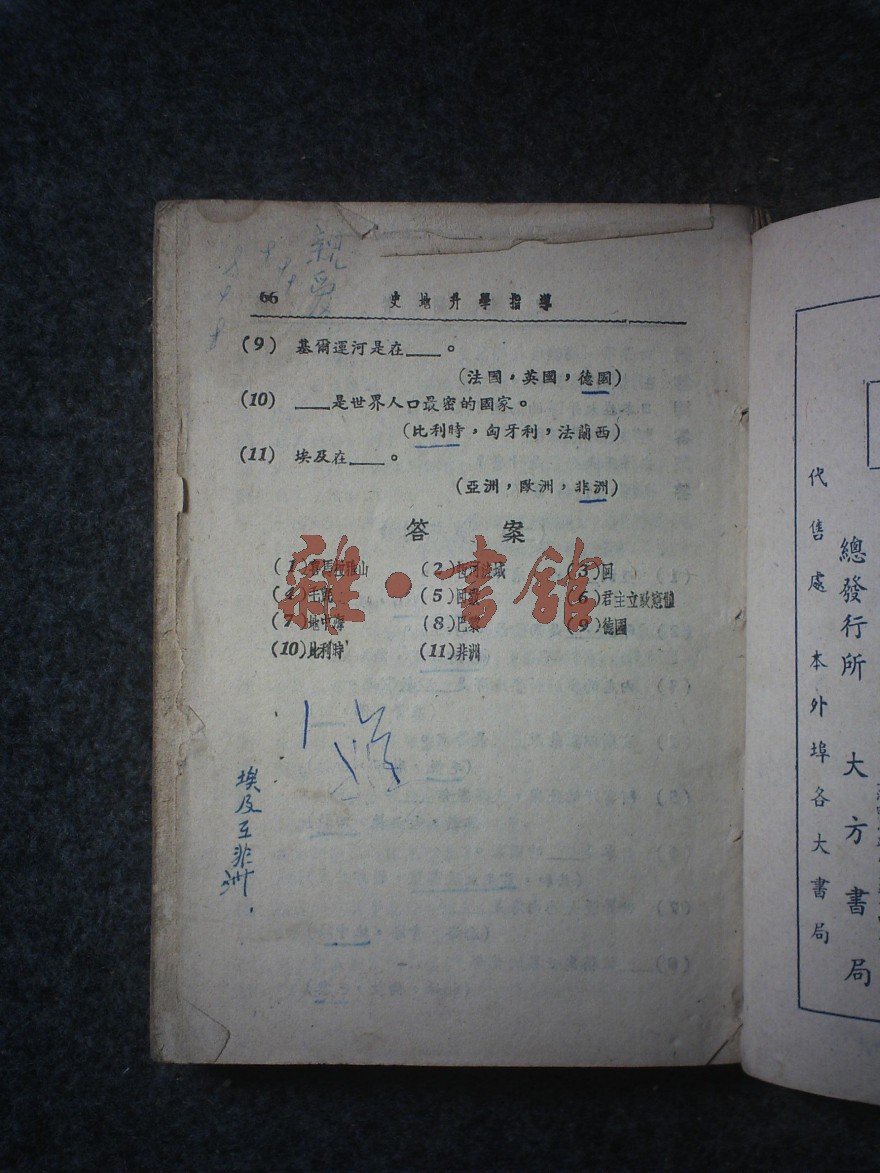 親愛
66 史地升學指導
(9) 基爾運河是在____。
(法國，英國，德國)
(10) ____是世界人口最密的國家。
(比利時，匈牙利，法蘭西)
(11) 埃及在____。
(亞洲，歐洲，非洲)
答案
(1)喜馬拉雅山 (2)恆河流域 (3)回
(4)  (5)回教 (6)君主立憲體
(7)地中海 (8)巴黎 (9)德國
(10)比利時 (11)非洲
雜·書館
埃及互非洲.
總發行所 大方書局
代售處 本外埠各大書局